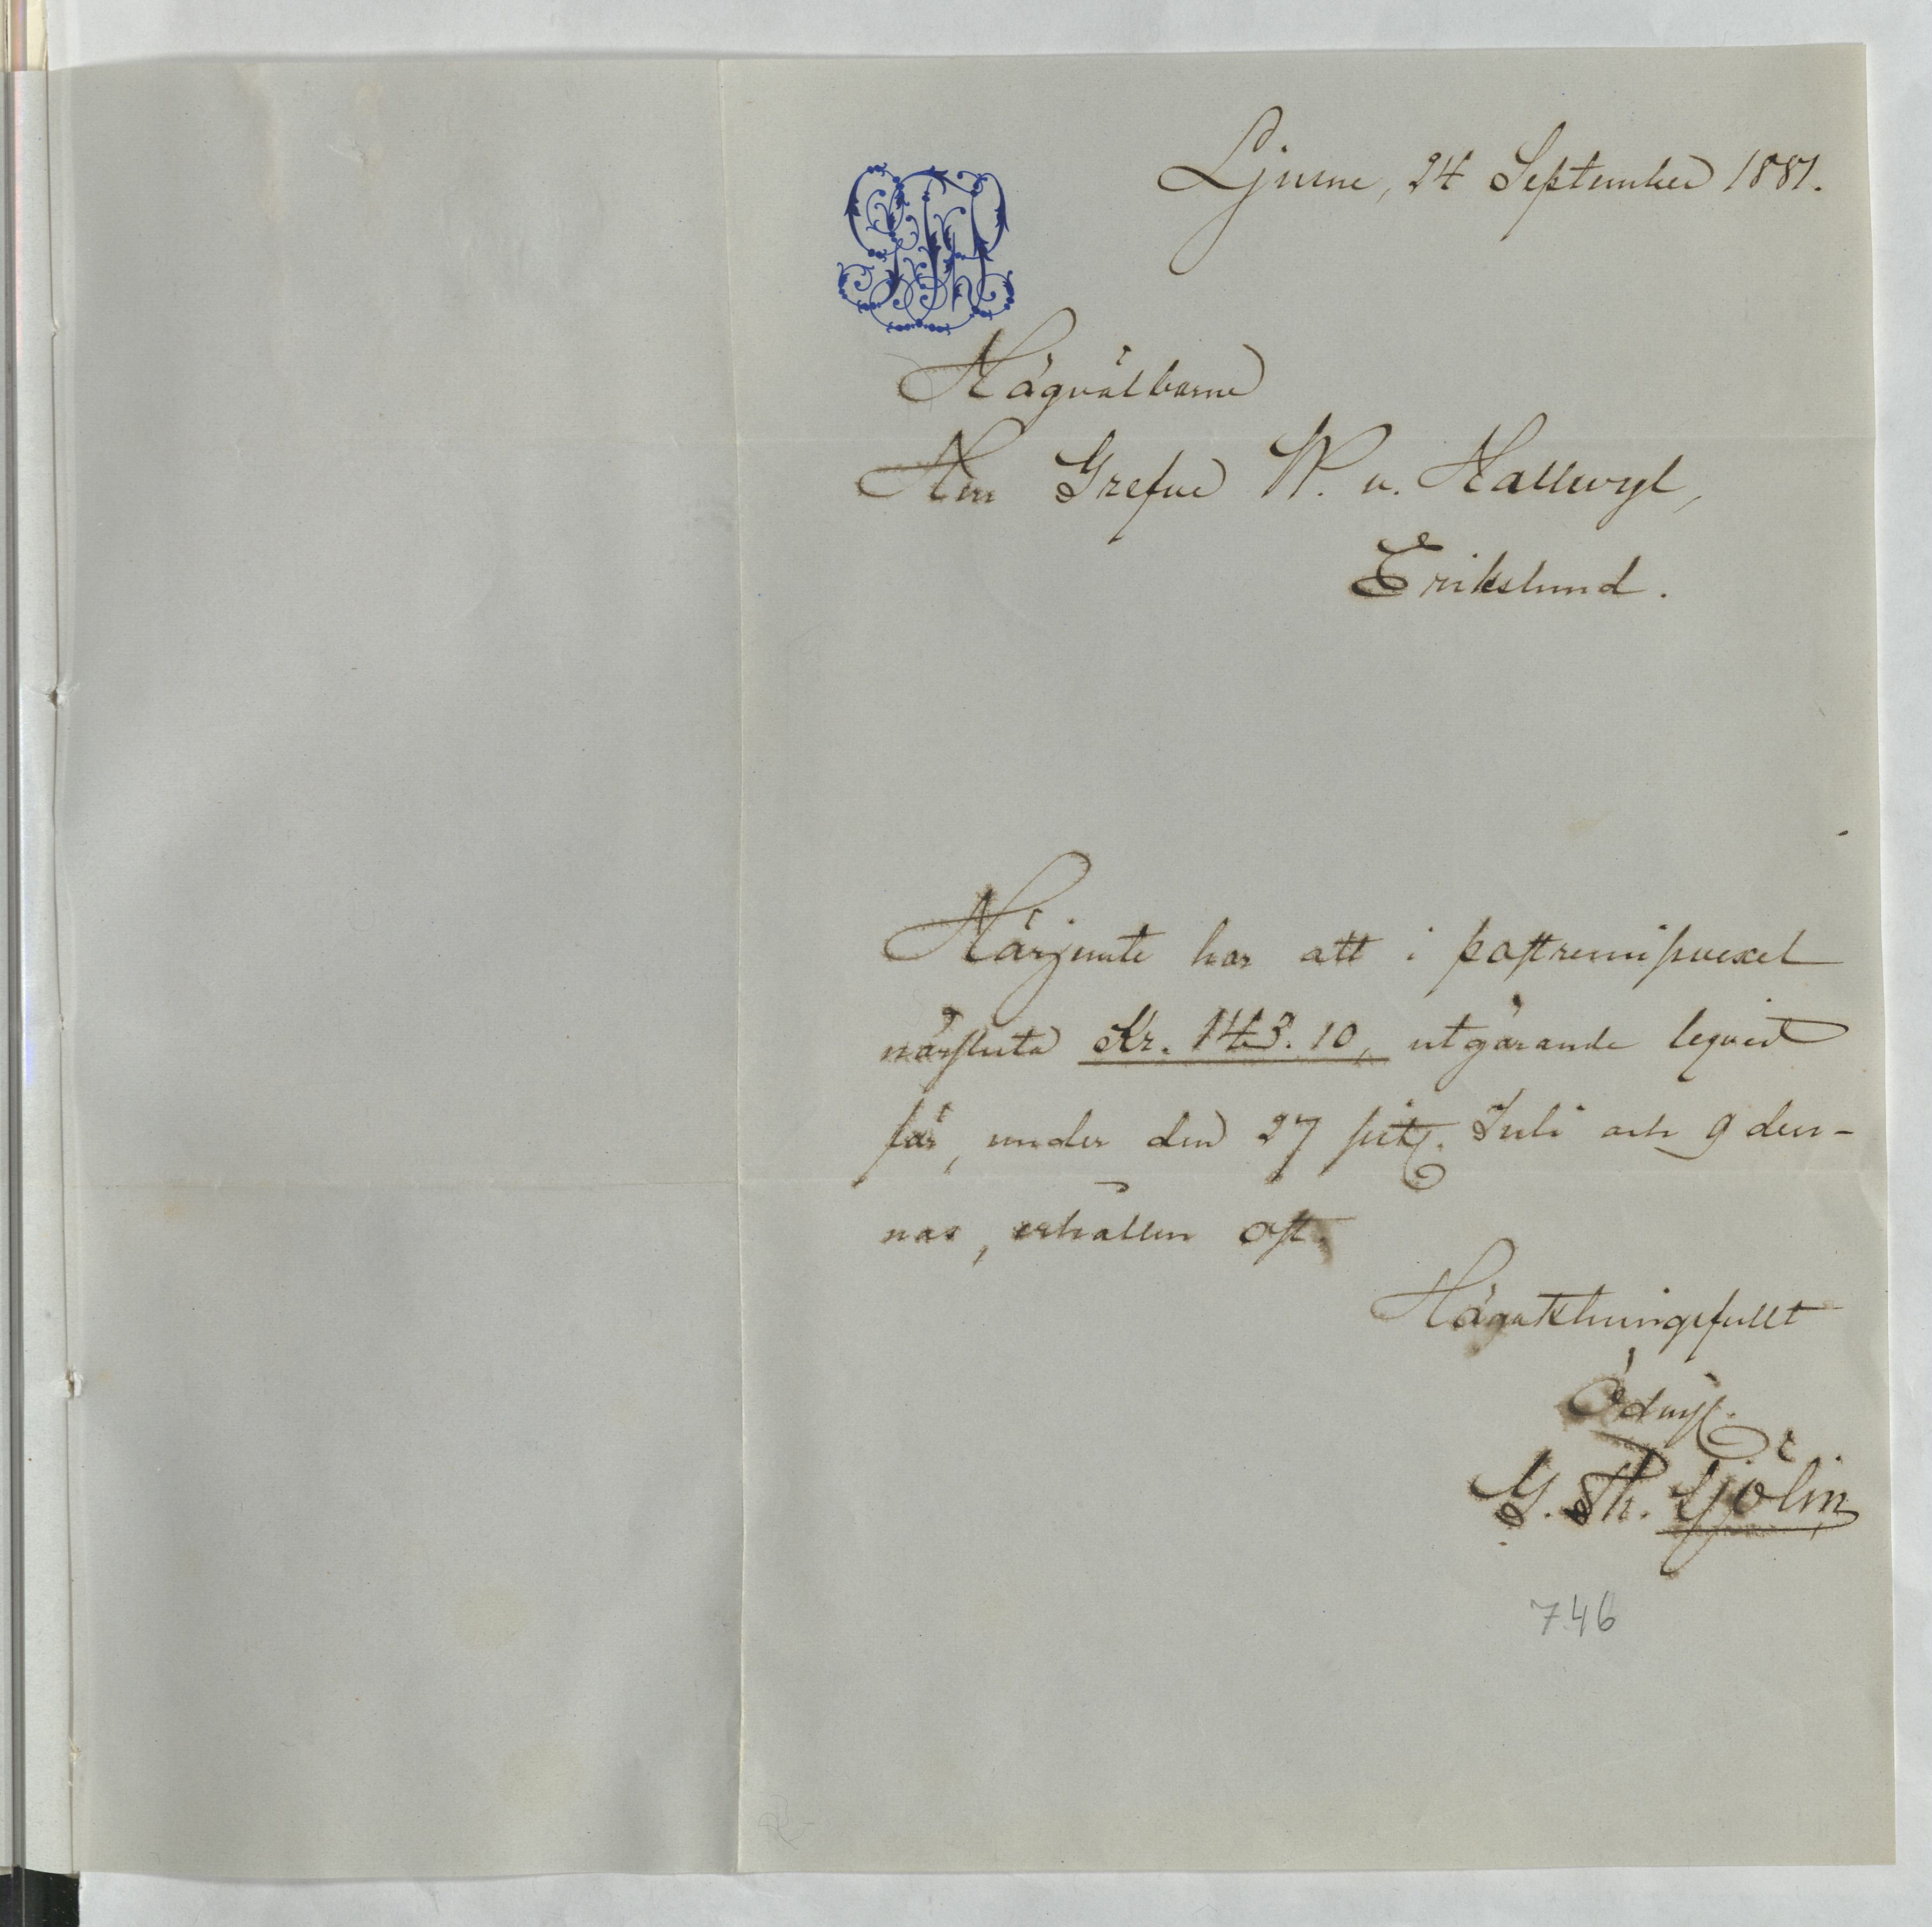 Ljusne, 24 September 1881.
Högvälborne
Herr Grefve W. v. Hallwyl,
Erikslund.
Härjemte har att i postremissvexel
närsluta Kr. 143. 10, utgörande leqvid
för, under den 27 sistl. Juli och 9 den-
nas, erhållen ost.
Högaktningsfullt
Ödmjt.
G. Th. Sjölin
746